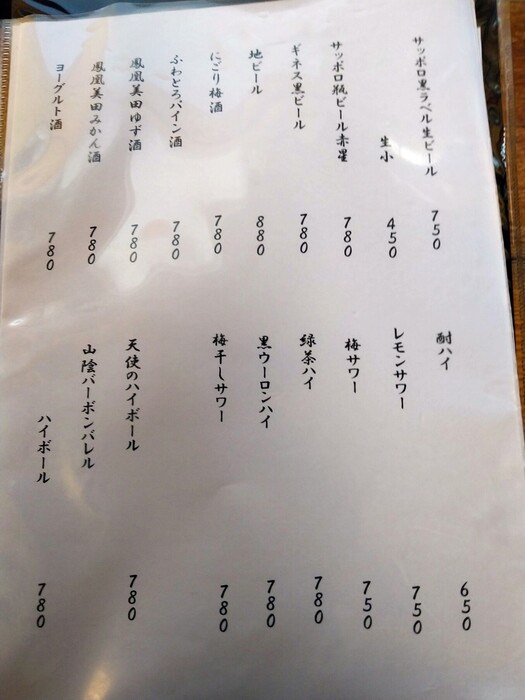 サッポロ黒ラベル生ビール 750
生小 450
サッポロ瓶ビール赤星 780
ギネス黒ビール 780
地ビール 880
にごり梅酒 780
ふわとろパイン酒 780
鳳凰美田ゆず酒 780
鳳凰美田みかん酒 780
ヨーグルト酒 780
酎ハイ 650
レモンサワー 750
梅サワー 750
緑茶ハイ 780
黒ウーロンハイ 780
梅干しサワー 780
天使のハイボール 780
山陰バーボンバレル
ハイボール 780